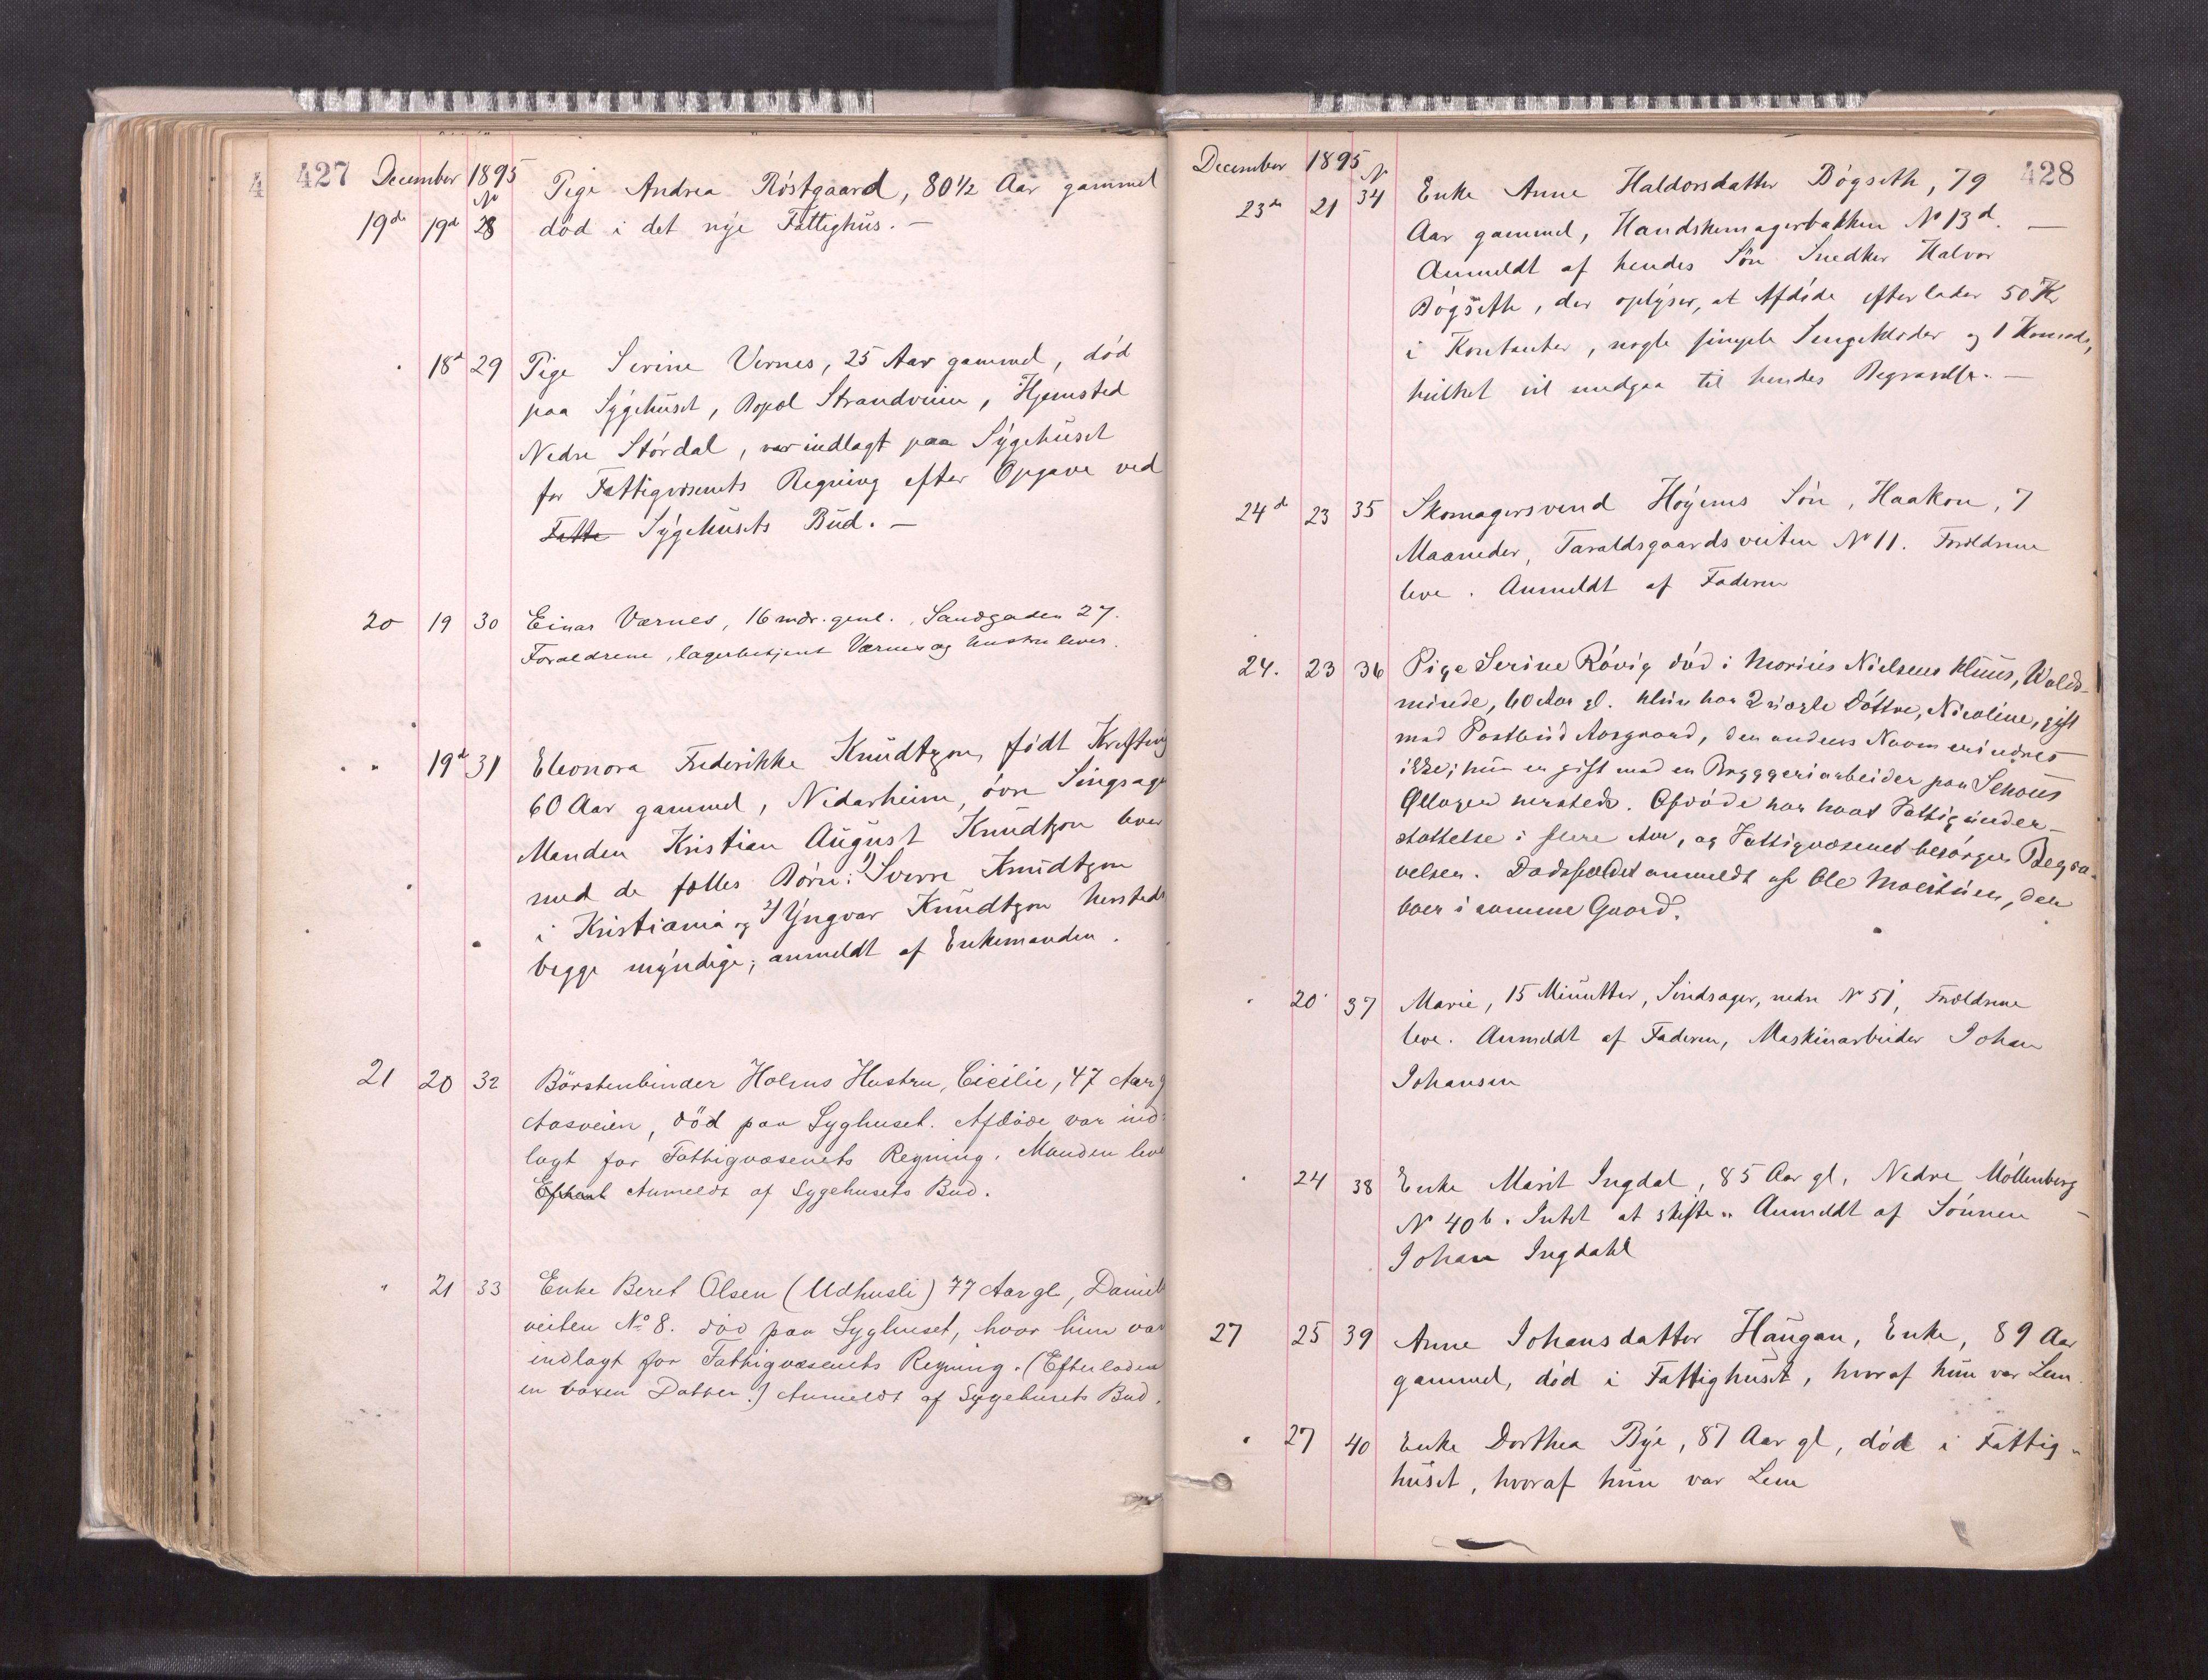 427 December 1895
No
19de 19de 28 Pige Andrea Röstgaard, 80 1/2 Aar gammel
död i det nye Fattighus. —
" 18d 29 Pige Serine Vernes, 25 Aar gammel, död
paa Sygehuset, Bopæl Strandveien, Hjemsted
Nedre Stördal, var indlagt paa Sygehuset
for Fattigvæsenets Regning efter Opgave ved
Fatte Sygehusets Bud. —
20 19 30 Einar Værnes, 16 mdr. gml., Sandgaden 27.
Forældrene, lagerbetjent Værnes og hustru lever.
" " 19d 31 Eleonora Frederikke Knudtzon, födt
60 Aar gammel, Nidarheim, övre Singsager
Manden Kristian August Knudtzon lever
med de fælles Börn: 1) Sverre Knudtzon
i Kristiania og 2) Yngvar Knudtzon hersteds
begge myndige; anmeldt af Enkemanden.
21 20 32 Börstenbinder Holms Hustru, Cicilie, 47 Aar g
Aasveien, död paa Syghuset. Afdöde var ind-
lagt for Fattigvæsenets Regning. Manden leve
Anmeldt af Sygehusets Bud.
" 21 33 Enke Beret Olsen (Udhusli) 77 Aar gl, Daniels
veiten No 8. död paa Syghuset, hvor hun var
indlagt for Fattigvæsenets Regning. (Efterlader
en voxen Datter.) Anmeldt af Sygehusets Bud.
December 1895 428
No
23de 21 34 Enke Anne Haldorsdatter Bögseth, 79
Aar gammel, Handskemagerbakken No 13d. —
Anmeldt af hendes Sön Snedker Halvor
Bögseth, der oplyser, at Afdöde efterlader 50 Kr
i Kontanter, nogle simple Sengeklæder og 1 Komode,
hvilket vil medgaa til hendes Begravelse. —
24d 23 35 Skomagersvend Höyems Sön, Haakon, 7
Maaneder, Taraldsgaardsveiten No 11. Forældrene
leve. Anmeldt af Faderen
24. 23 36 Pige Serine Rövig död i Marius Nielsens Huus, Wolds-
minde, 60 Aar gl. Hun har 2 uægte döttre, Nicoline, gift
med Postbud Aasgaard, den andens Navn erindres
ikke; hun er gift med en Bryggeriarbeider paa Schous
Öllager hersteds. Afdöde har havt Fattigunder-
støttelse i flere Aar, og Fattigvæsenet besörger Begra-
velsen. Dødsfaldet anmeldt af Ole Moestuen, der
boer i samme Gaard.
" 20 37 Marie, 15 Minutter, Sindsager, nedre No 51, Forældrene
leve. Anmeldt af Faderen, Maskinarbeider Johan
Johansen
" 24 38 Enke Marit Ingdal, 85 Aar gl, Nedre Möllenberg
No 40 b. Intet at skifte. Anmeldt af Sönnen —
Johan Ingdahl
27 25 39 Anne Johansdatter Haugan, Enke, 89 Aar
gammel, död i Fattighuset, hvoraf hun var Lem.
" 27 40 Enke Dorthea Bye, 87 Aar gl, död i Fattig-
huset, hvoraf hun var Lem